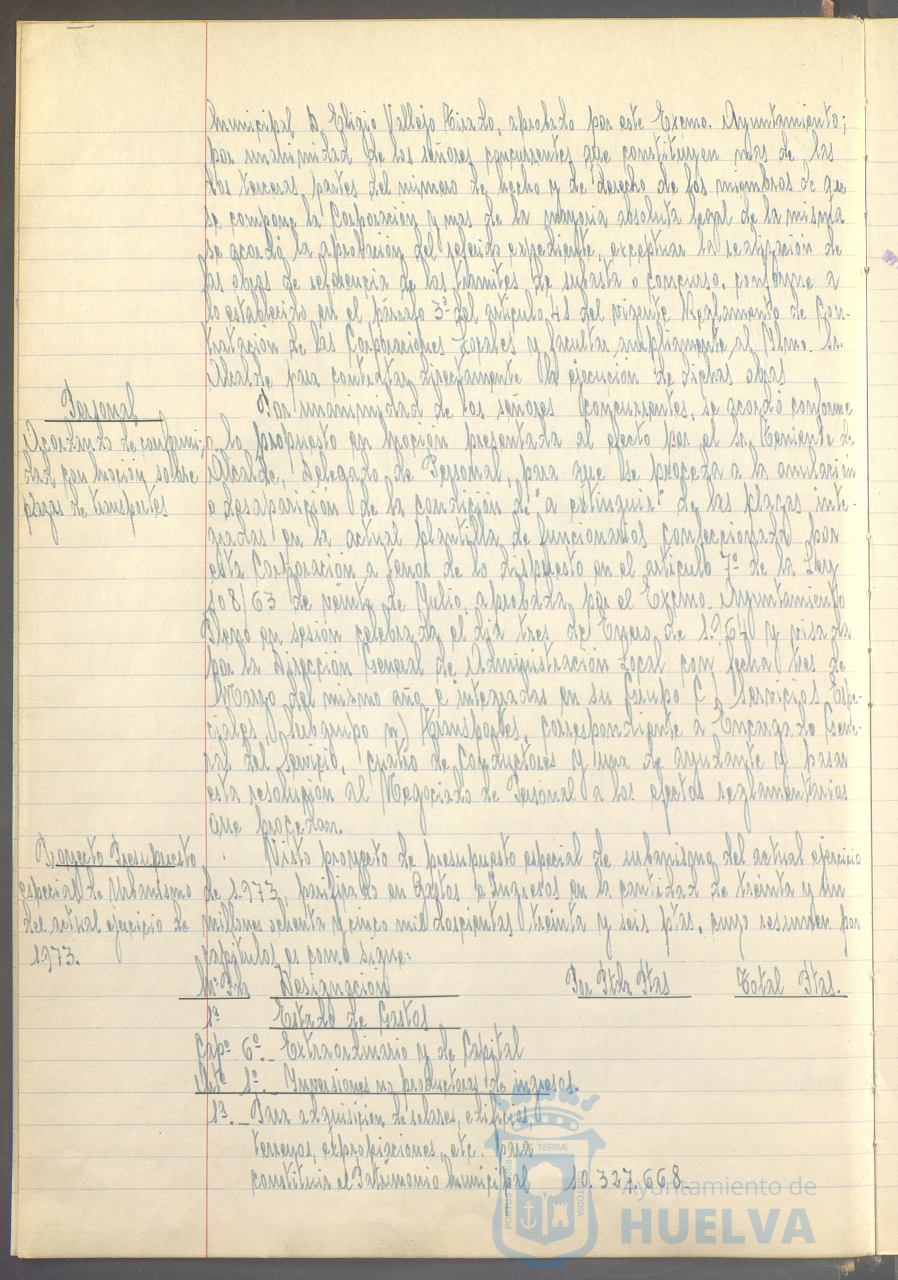 municipal D. Eligio Vallejo Tirado, aprobado por este Excmo. Ayuntamiento;
por unanimidad de los señores concurrentes que constituyen mas de las
dos terceras partes del número de hecho y de derecho de los miembros de que
se compone la Corporación y mas de la mayoria absoluta legal de la misma
se acordó la aprobación del referido expediente, exceptuar la realización de
las obras de referencia de los trámites de subasta o concurso, conforme a
lo establecido en el párrafo 3º del artículo 41 del vigente Reglamento de Con-
tratación de las Corporaciones Locales y facultar ampliamente al Iltmo. Sr.
Alcalde para contratar directamente la ejecución de dichas obras
Personal
Acordando de conformi-
dad con moción sobre
plazas de transportes
Por unanimidad de los señores concurrentes, se acordó conforme
a lo propuesto en moción presentada al efecto por el Sr. Teniente de
Alcalde, Delegado de Personal, para que se proceda a la anulación
o desaparición de la condición de "a extinguir" de las plazas inte-
gradas en la actual plantilla de funcionarios confeccionada por
esta Corporación a tenor de lo dispuesto en el artículo 7º de la Ley
108/63 de veinte de Julio, aprobada por el Excmo. Ayuntamiento
Pleno en sesión celebrada el día tres de Enero de 1.964 y visada
por la Dirección General de Administración Local con fecha tres de
Marzo del mismo año e integradas en su Grupo C) Servicios Espe-
ciales, Subgrupo n) Transportes, correspondiente a Encargado Gene-
ral del Servicio, cuatro de Conductores y una de ayudante y pasar
esta resolución al Negociado de Personal a los efectos reglamentarios
que procedan.
Proyecto Presupuesto
especial de Urbanismo
del actual ejercicio de
1.973.
Visto proyecto de presupuesto especial de urbanismo del actual ejercicio
de 1.973, nivelado en Gastos e Ingresos en la cantidad de treinta y un
millones ochenta y cinco mil doscientas treinta y seis ptas, cuyo resumen por
capítulos es como sigue:
Nº Pda Designación Por Ptda Ptas Total Ptas.
1º Estado de Gastos
Capº 6º.- Extraordinario y de Capital
Artº 1º.- Inversiones no productoras de ingresos.
1ª.- Para adquisición de solares, edificios,
terrenos, expropiaciones, etc. para
constituir el Patrimonio Municipal 10.327.668.-
Ayuntamiento de
HUELVA